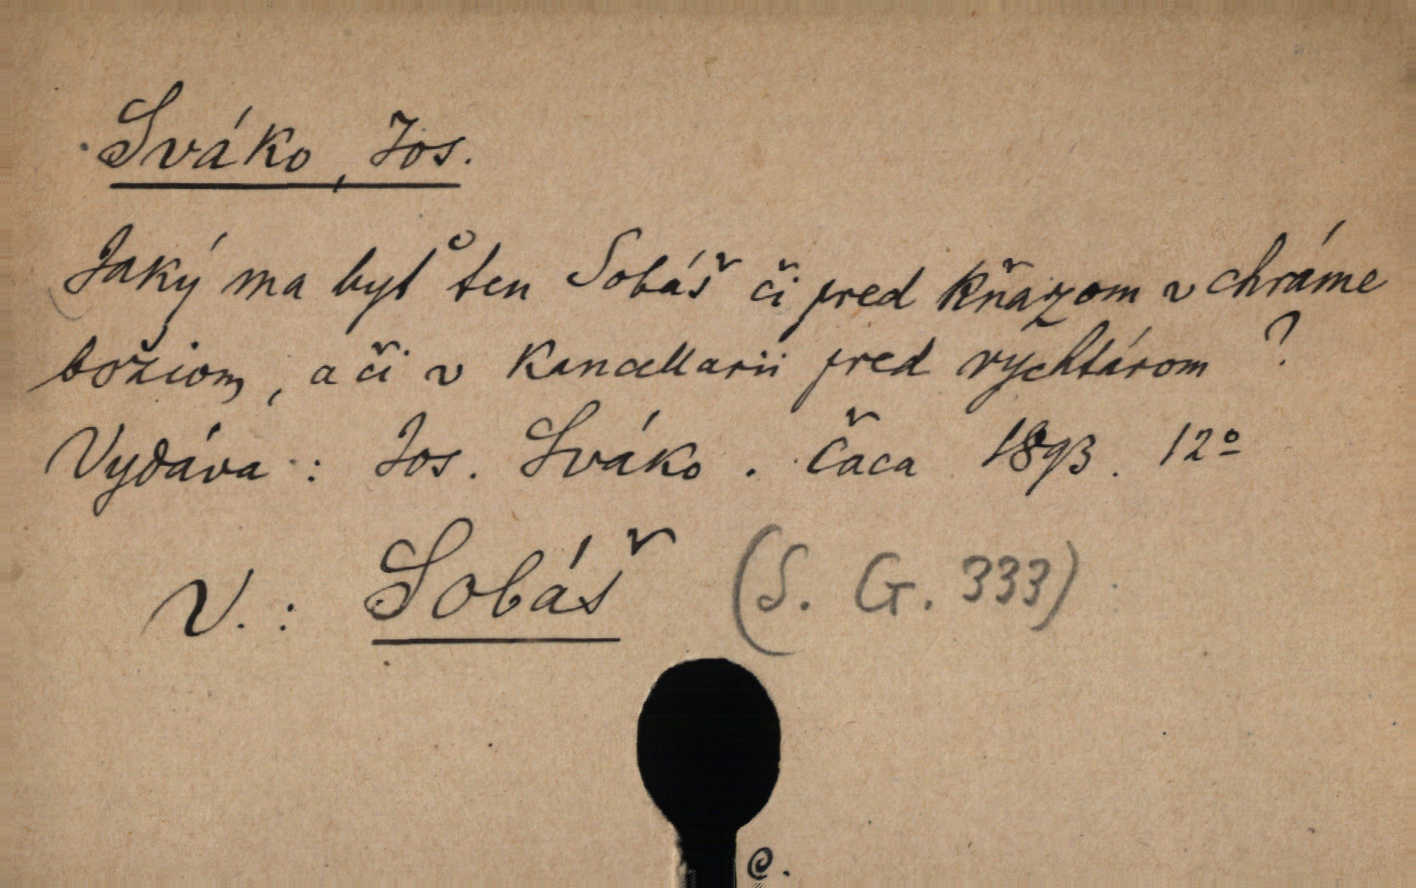 Sváko, Jos.
Jaký ma byť ten Sobáš či pred kňazom v chráme
božiom, a či v kancellarii pred rychtárom ?
Vydáva : Jos. Sváko . Čaca 1893. 12º
V. : Sobáš (S. G. 333)
C.